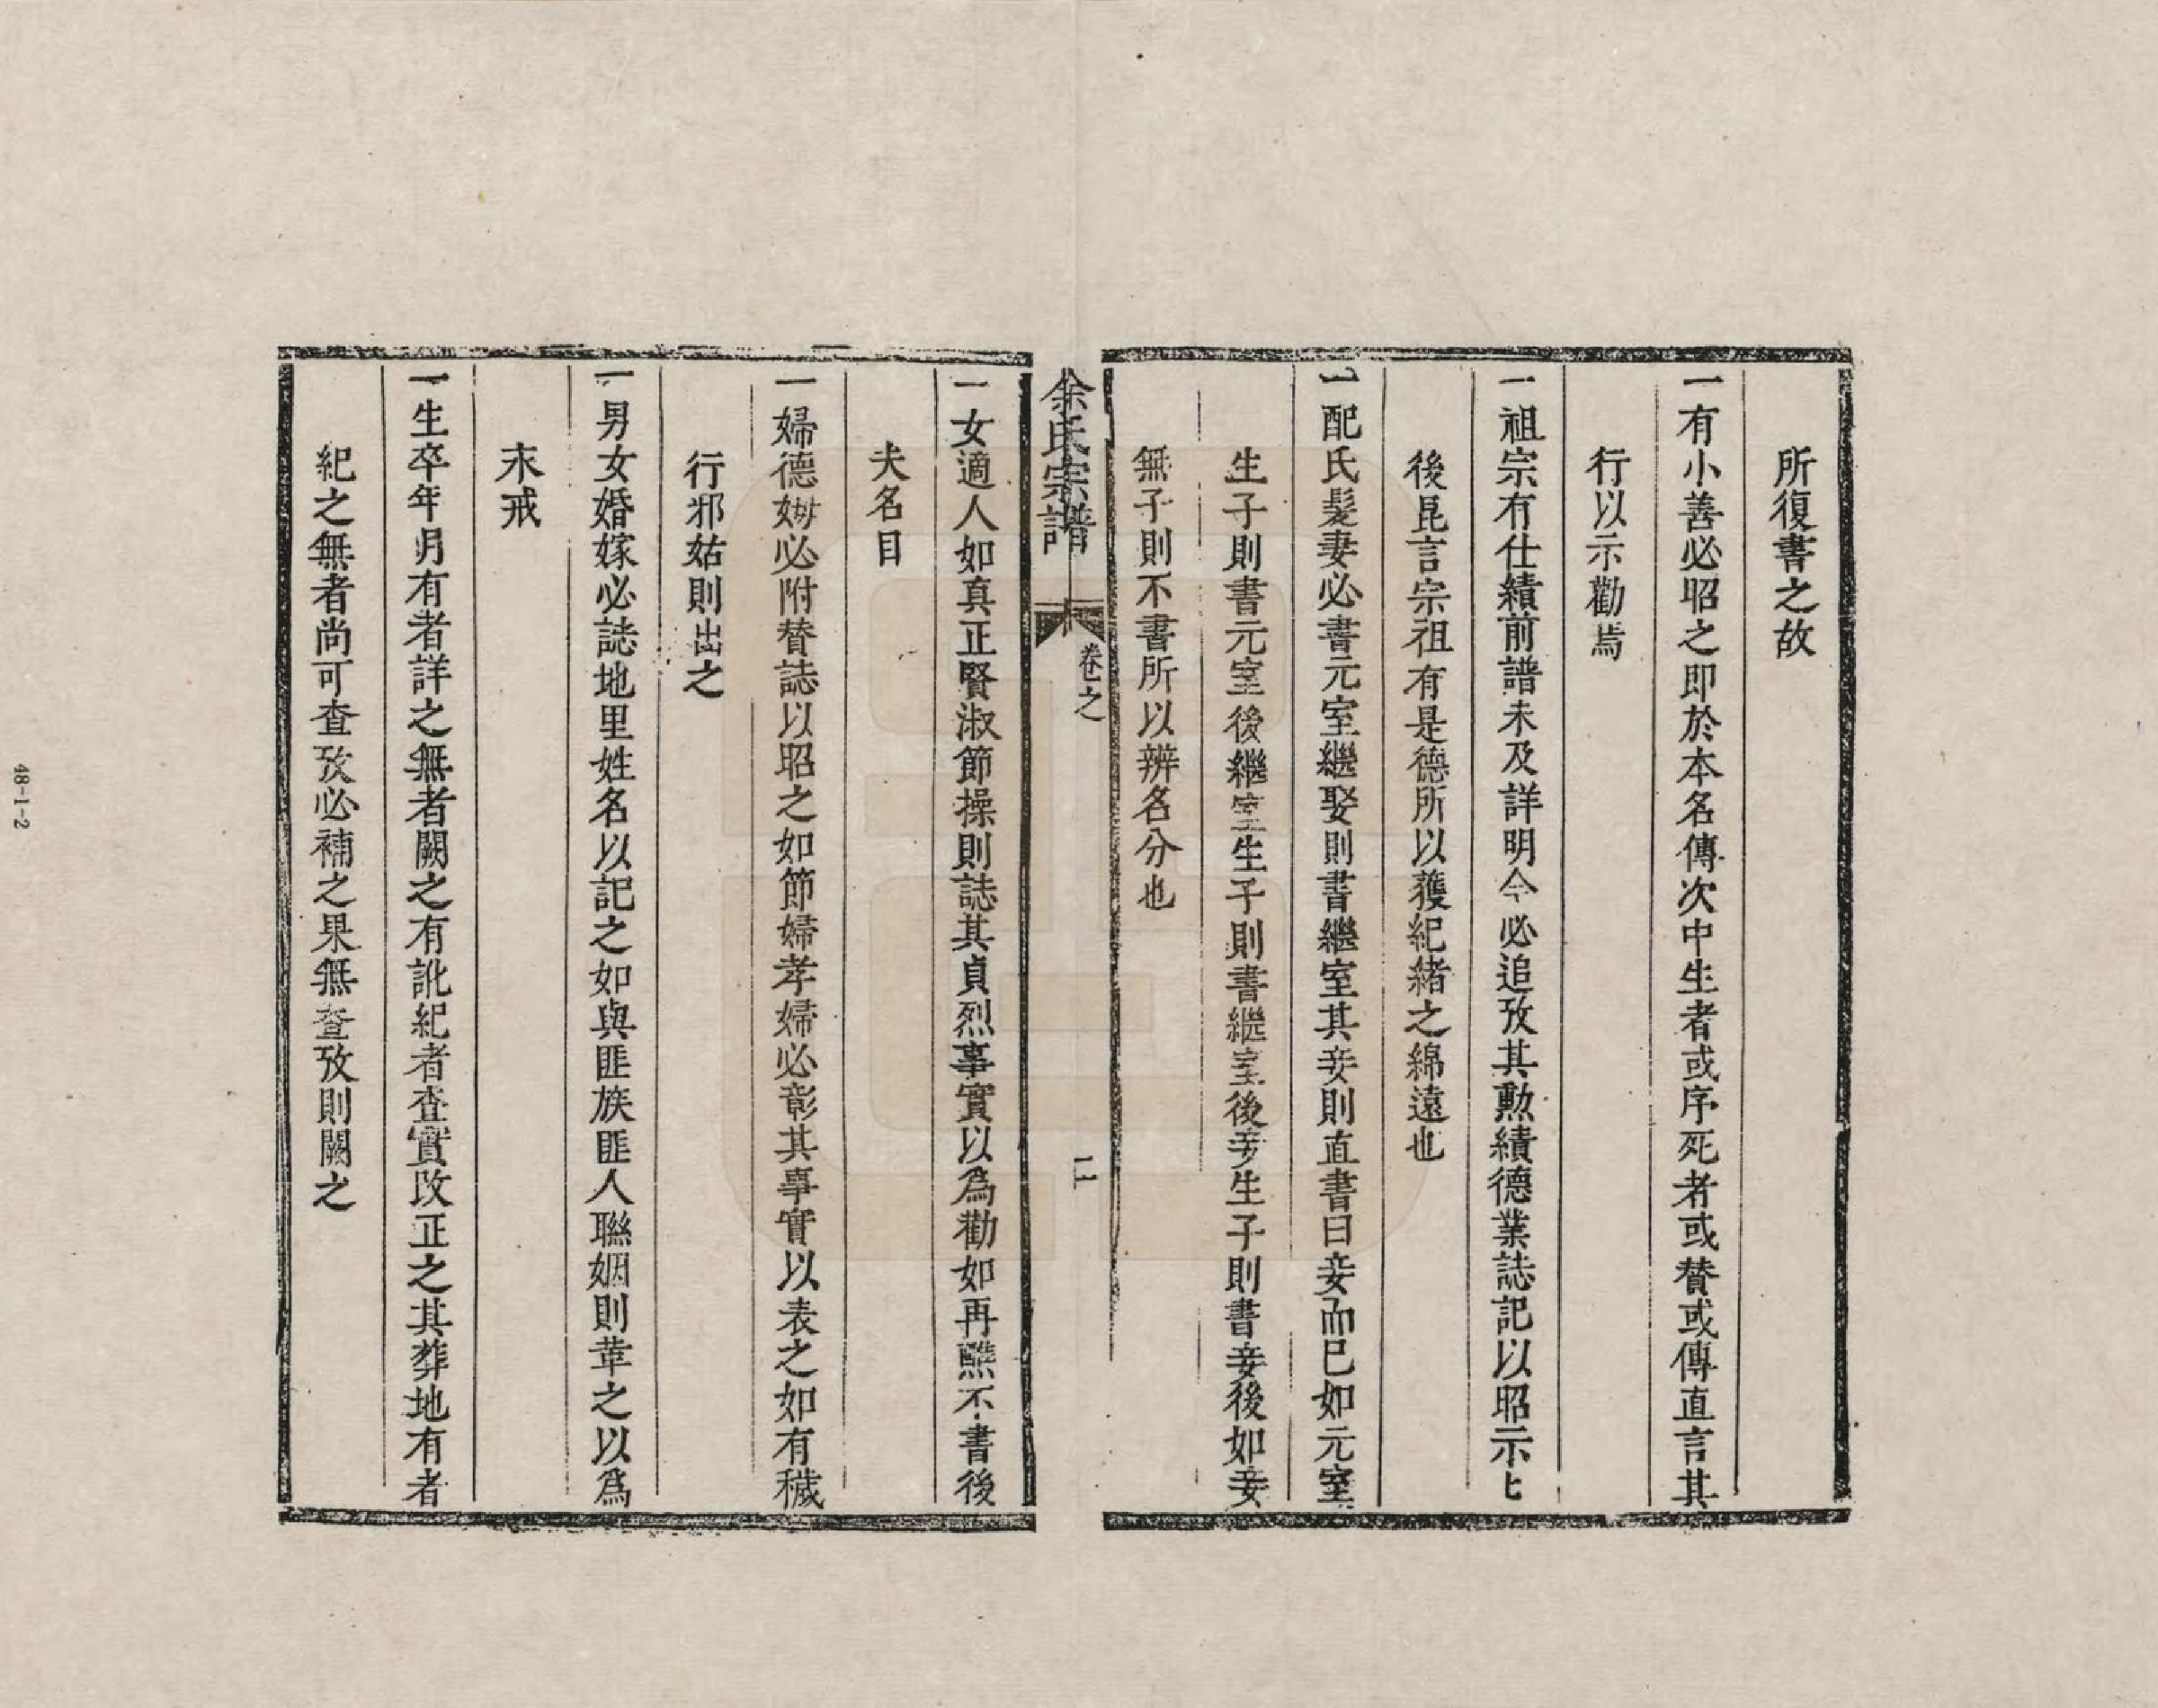 所復書之故
一有小善必昭之即於本名傳次中生者或序死者或賛或傳直言其
行以示勸焉
一祖宗有仕績前譜未及詳明今必追攷其勲績德業誌記以昭示
後昆言宗祖有是德所以獲紀緒之綿遠也
一配氏髮妻必書元室繼娶則書繼室其妾則直書曰妾而已如元室
生子則書元室後繼室生子則書繼室後妾生子則書妾後如妾
無子則不書所以辨名分也
余氏宗譜
卷之
二
一女適人如真正賢淑節操則誌其貞烈事實以為勸如再醮不書後
夫名目
一婦德姆必附賛誌以昭之如節婦孝婦必彰其事實以表之如有穢
行邪姑則出之
一男女婚嫁必誌地里姓名以記之如與匪族匪人聯姻則革之以爲
末戒
一生卒年月有者詳之無者闕之有訛紀者查實改正之其葬地有者
紀之無者尚可查攷必補之果無查攷則闕之
48-1-2